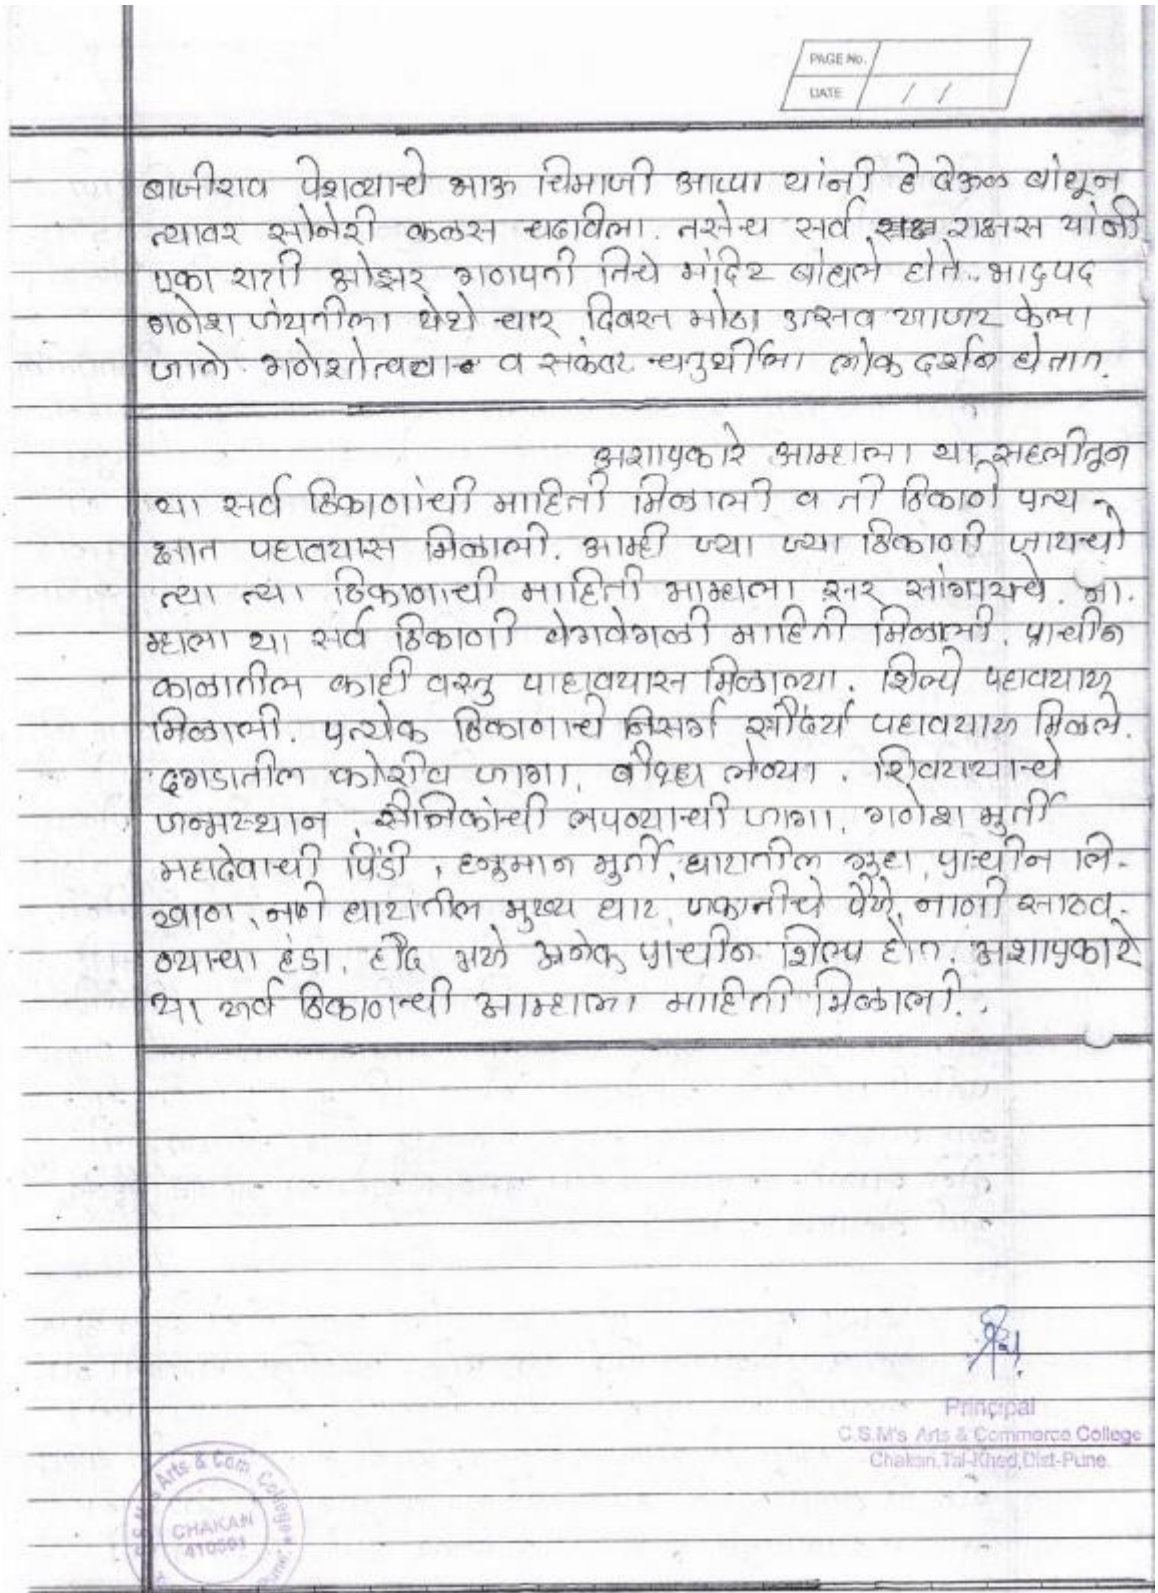 PAGE No.
DATE / /
बाजीराव पेशव्याचे भाऊ चिमाजी आप्पा यांनी हे देऊळ बांधून
त्यावर सोनेरी कळस चढाविला. तसेच सर्व राक्षस यांनी
एका रात्री ओझर गणपती तिचे मंदिर बांधले होते. भाद्रपद
गणेश जंयतीला येथे चार दिवस मोठा उत्सव साजर केला
जातो. व सकंष्ट चतुर्थीला लोक दर्शन घेतात.
अशाप्रकारे आम्हाला या सहलीतून
या सर्व ठिकाणांची माहिती मिळाली व ती ठिकाणे प्रत्य-
क्षात पहावयास मिळाली. आम्ही ज्या ज्या ठिकाणी जायचो
त्या त्या ठिकाणाची माहिती आम्हाला सर सांगायचे. आ.
म्हाला या सर्व ठिकाणी वेगवेगळी माहिती मिळाली. प्राचीन
काळातील काही वस्तु पाहावयास मिळाल्या. शिल्पे पहावयास
मिळाली. प्रत्येक ठिकाणाचे निसर्ग सौदंर्य पहावयास मिळले.
दगडातील कोरीव जागा, बौध्द लेण्या. शिवरायाचे
जन्मस्थान, सैनिकांची लपण्याची जागा, गणेश मुर्ती
महादेवाची पिंडी, हनुमान मुर्ती, घाटातील गुहा, प्राचीन लि-
खाण, नाणे घाटातील मुख्य घाट, जकातीचे पैसे, नाणी साठव-
ण्याचा हंडा, हौद असे अनेक प्राचीन शिल्प होत. अशाप्रकारे
या सर्व ठिकाणची आम्हाला माहिती मिळाली.
Principal
C.S.M's Arts & Commerce College
Chakan, Tal-Khed, Dist-Pune.
C.S.M's Arts & Com. College
CHAKAN
410501